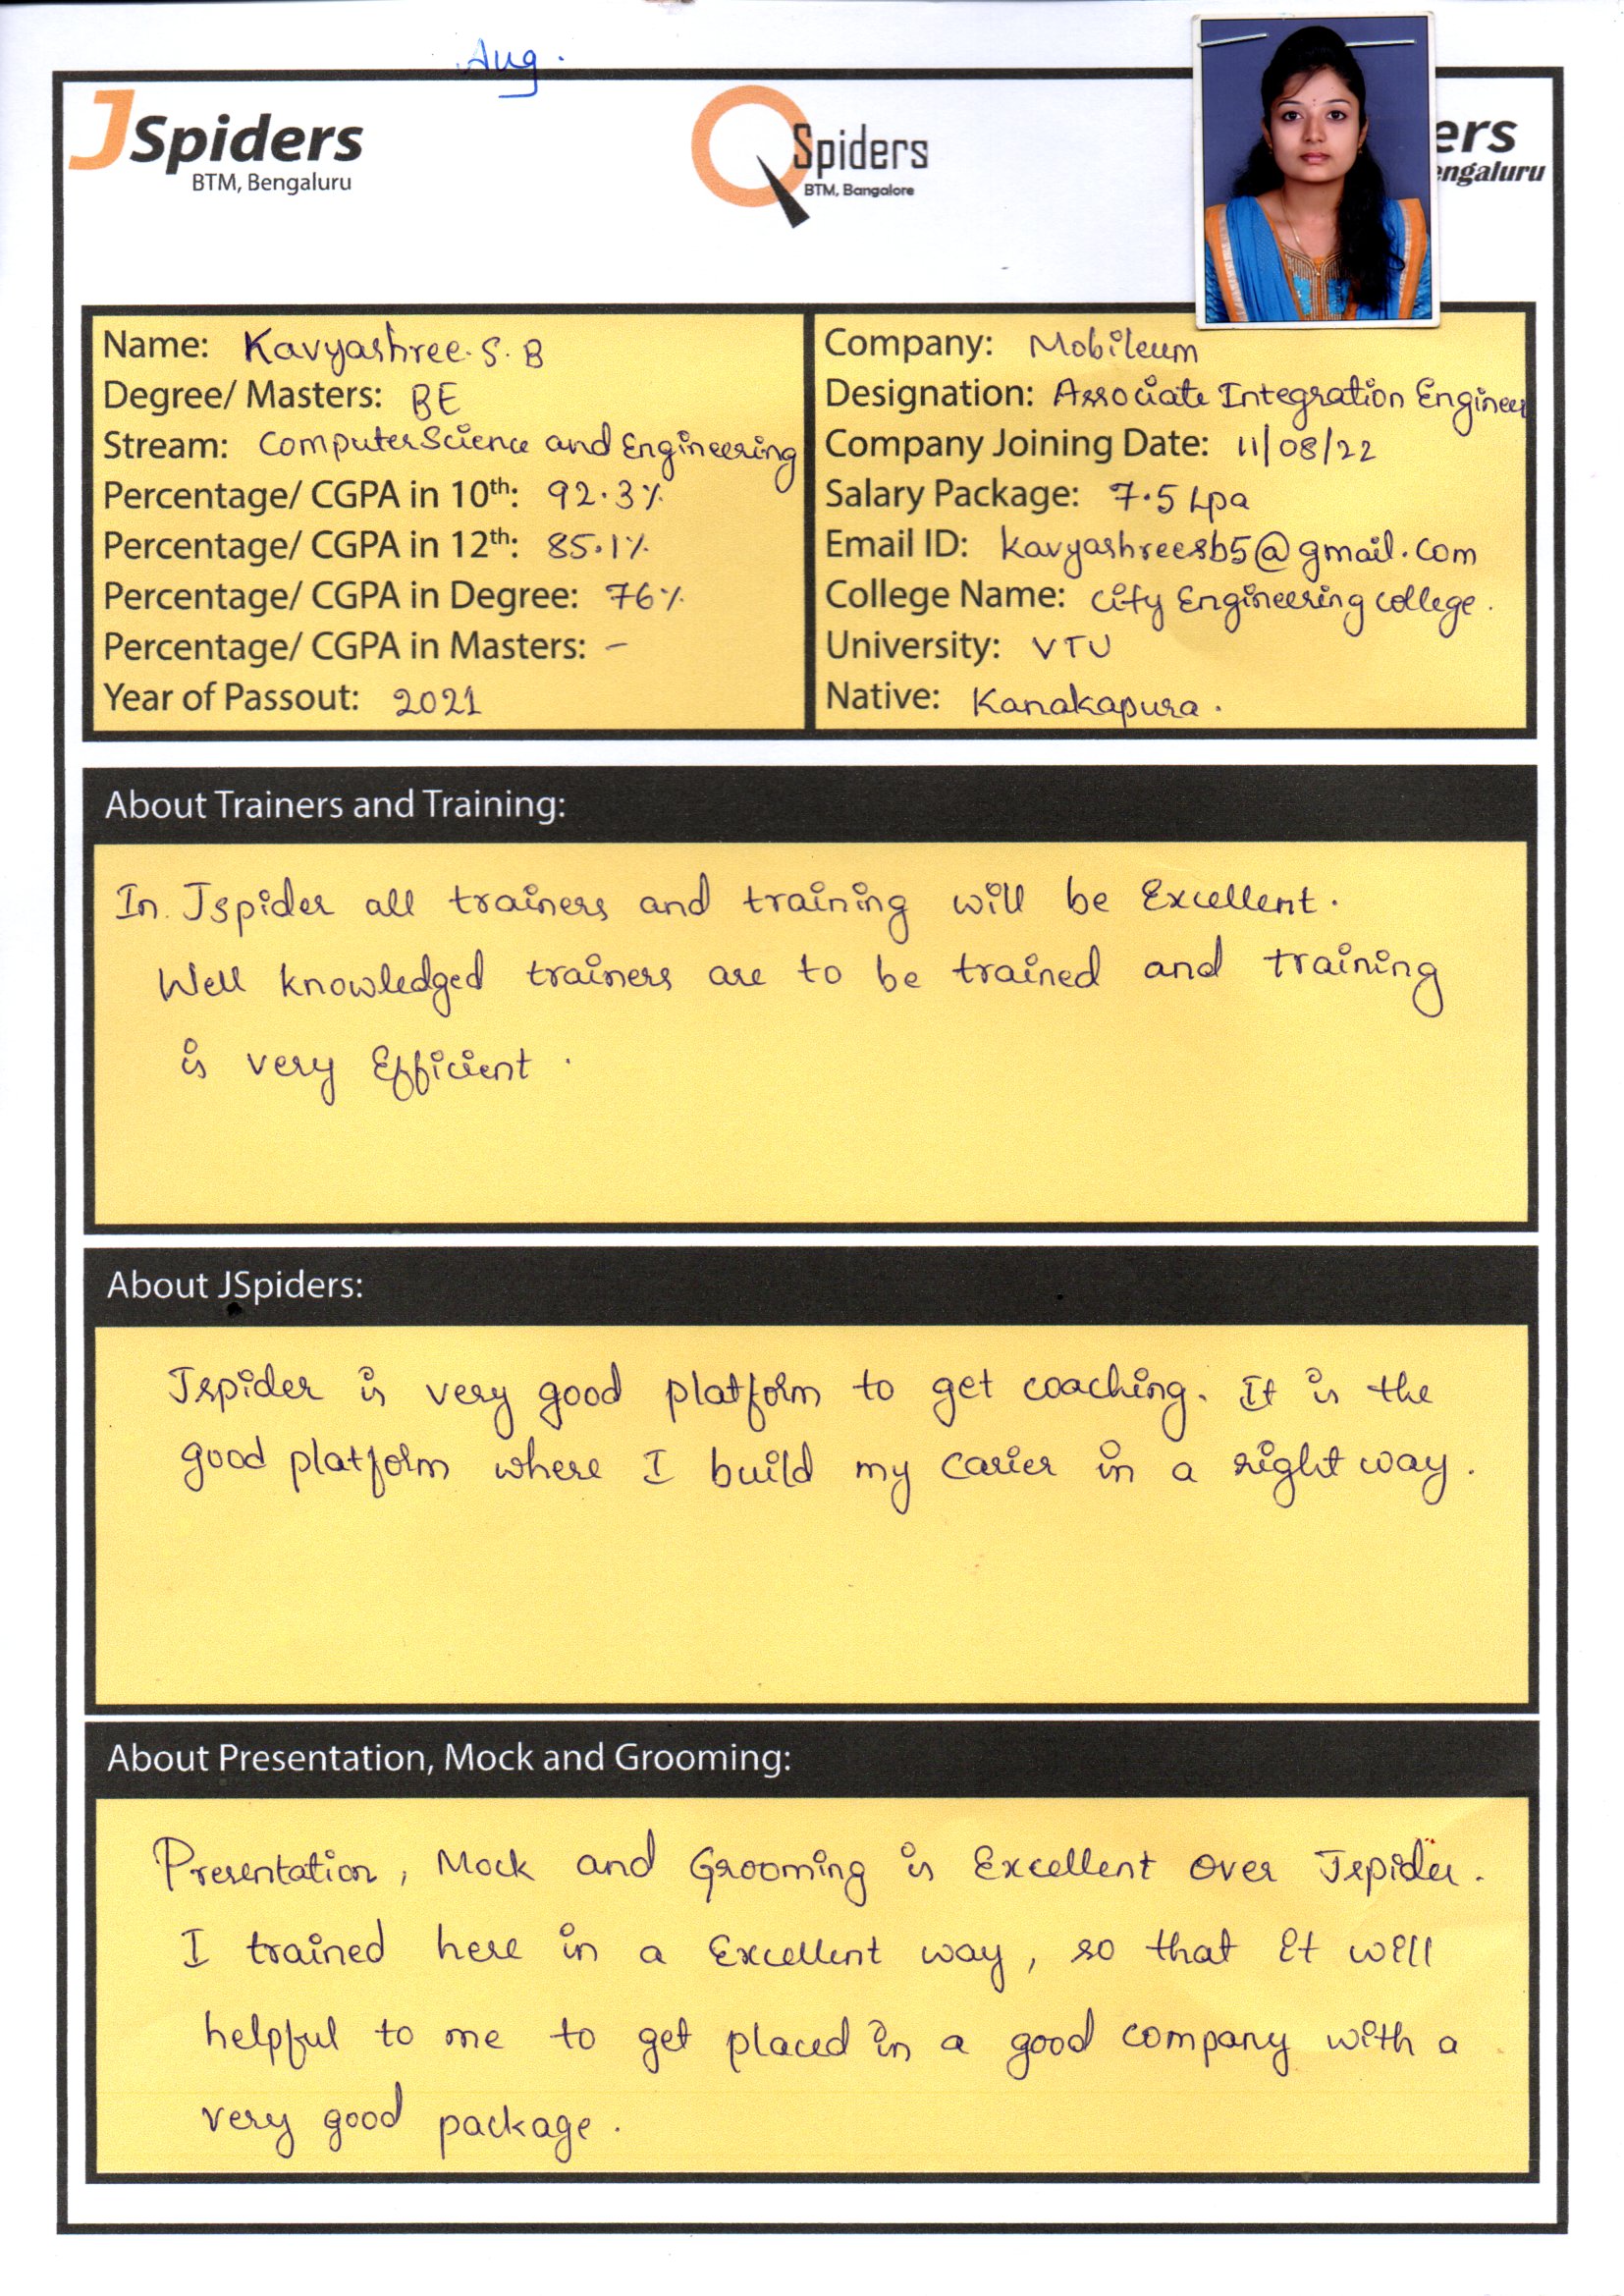 Aug.
JSpiders
BTM, Bengaluru
QSpiders
BTM, Bangalore
ers
engaluru
Name: Kavyashree. S. B
Degree/ Masters: BE
Stream: Computer Science and Engineering
Percentage/ CGPA in 10th: 92.3%
Percentage/ CGPA in 12th: 85.1%
Percentage/ CGPA in Degree: 76%
Percentage/ CGPA in Masters: -
Year of Passout: 2021
Company: Mobileum
Designation: Associate Integration Engineer
Company Joining Date: 11/08/22
Salary Package: 7.5 Lpa
Email ID: kavyashreesb5@gmail.com
College Name: City Engineering college.
University: VTU
Native: Kanakapura.
About Trainers and Training:
In Jspider all trainers and training will be Excellent.
Well knowledged trainers are to be trained and training
is very Efficient.
About JSpiders:
Jspider is very good platform to get coaching. It is the
good platform where I build my carier in a right way.
About Presentation, Mock and Grooming:
Presentation, Mock and Grooming is Excellent over Jspider.
I trained here in a Excellent way, so that it will
helpful to me to get placed in a good company with a
very good package.